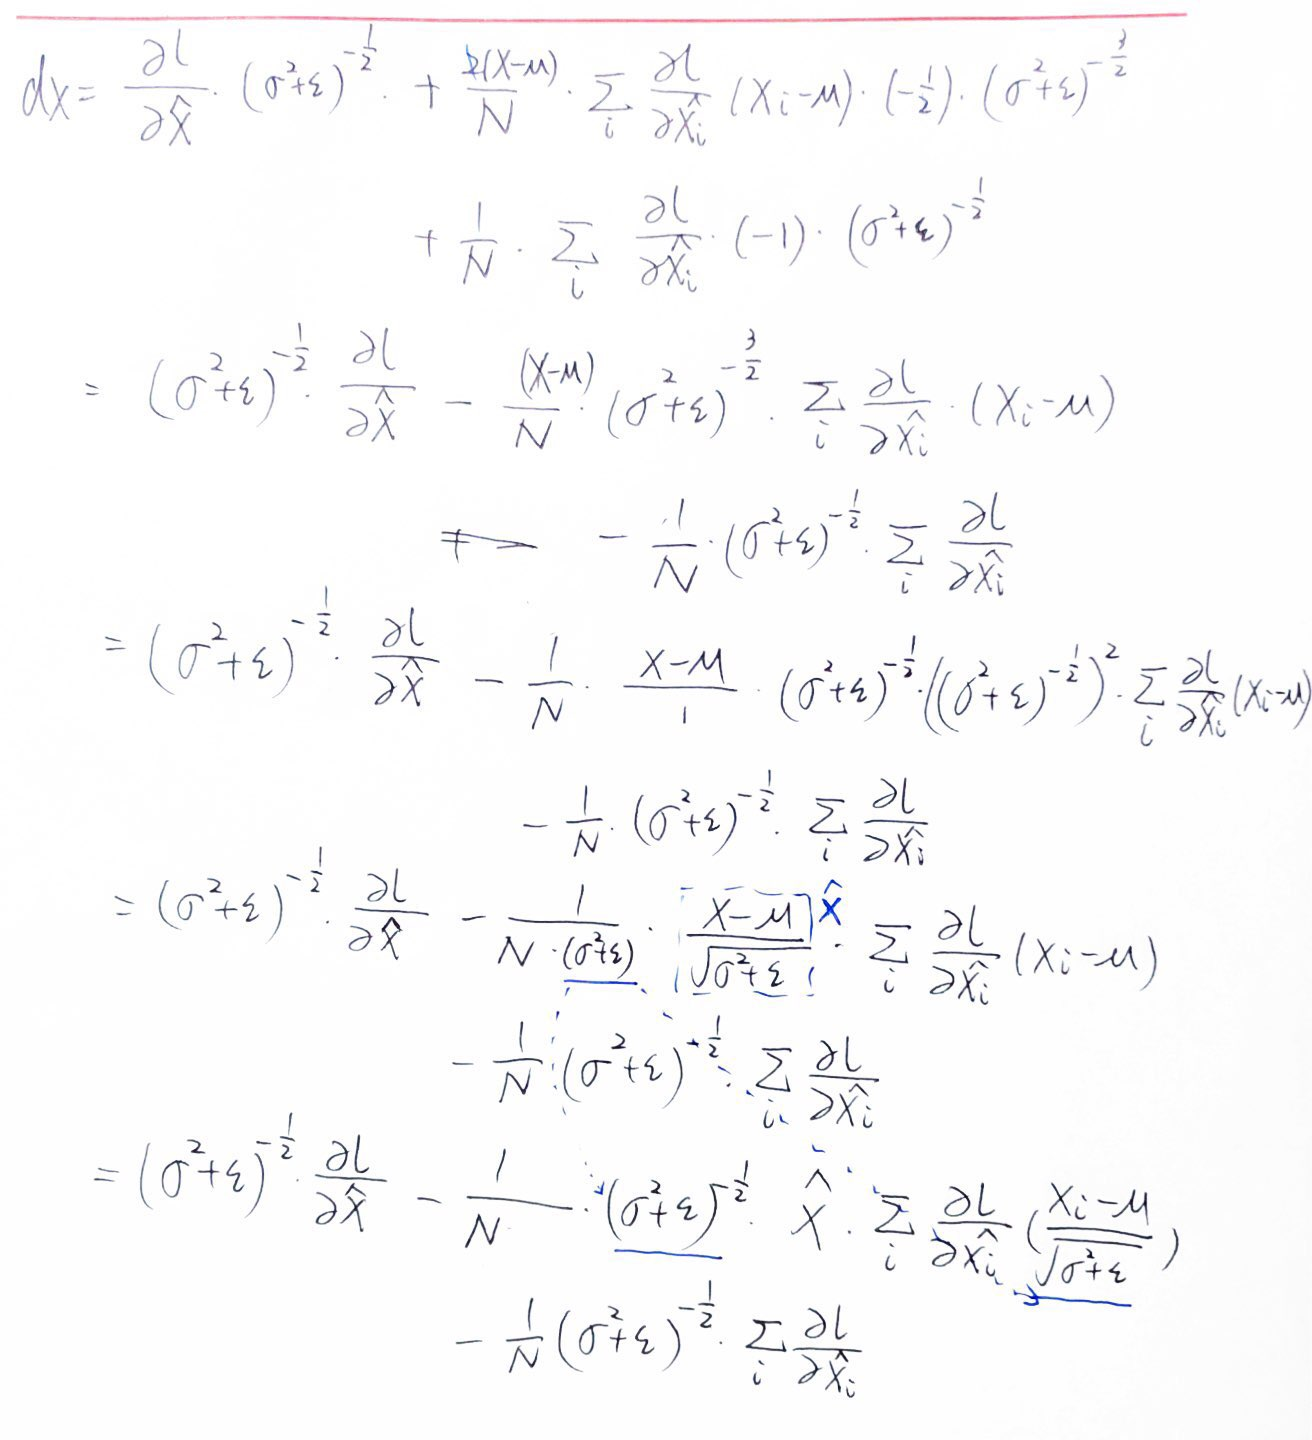 dx = ∂l/∂x̂ · (σ²+ε)^(-1/2) · + 2(x-μ)/N · Σ_i ∂l/∂x̂_i (x_i-μ) · (-1/2) · (σ²+ε)^(-3/2)
+ 1/N · Σ_i ∂l/∂x̂_i · (-1) · (σ²+ε)^(-1/2)
= (σ²+ε)^(-1/2) · ∂l/∂x̂ - (x-μ)/N · (σ²+ε)^(-3/2) · Σ_i ∂l/∂x̂_i · (x_i-μ)
- 1/N · (σ²+ε)^(-1/2) · Σ_i ∂l/∂x̂_i
= (σ²+ε)^(-1/2) · ∂l/∂x̂ - 1/N · (x-μ)/1 · (σ²+ε)^(-1/2) · ((σ²+ε)^(-1/2))² · Σ_i ∂l/∂x̂_i (x_i-μ)
- 1/N · (σ²+ε)^(-1/2) · Σ_i ∂l/∂x̂_i
= (σ²+ε)^(-1/2) · ∂l/∂x̂ - 1/(N·(σ²+ε)) · (x-μ)/√(σ²+ε) x̂ · Σ_i ∂l/∂x̂_i (x_i-μ)
- 1/N · (σ²+ε)^(-1/2) · Σ_i ∂l/∂x̂_i
= (σ²+ε)^(-1/2) · ∂l/∂x̂ - 1/N · (σ²+ε)^(-1/2) · x̂ · Σ_i ∂l/∂x̂_i ((x_i-μ)/√(σ²+ε))
- 1/N (σ²+ε)^(-1/2) · Σ_i ∂l/∂x̂_i